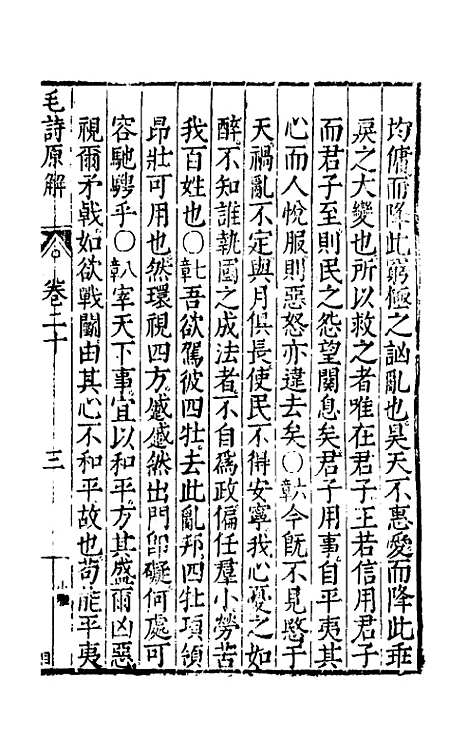 均傭而降此窮極之訩亂也昊天不惠愛而降此乖
戾之大變也所以救之者唯在君子王若信用君子
而君子至則民之怨望闋息矣君子用事自平夷其
心而人悅服則惡怒亦違去矣○章六今旣不見愍于
天禍亂不定與月俱長使民不得安寧我心憂之如
醉不知誰執國之成法者不自爲政偏任羣小勞苦
我百姓也○章七吾欲駕彼四牡去此亂邦四牡項領
昂壯可用也然環視四方蹙蹙然出門卽礙何處可
容馳騁乎○章八宰天下事宜以和平方其盛爾凶惡
視爾矛戟如欲戰鬭由其心不和平故也苟能平夷
毛詩原解
卷二十
三